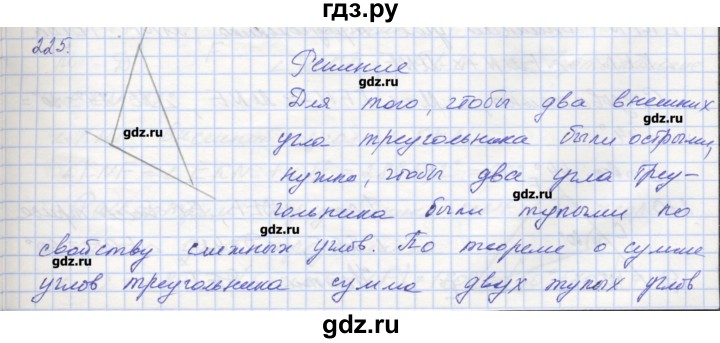 гдз.ру
225.
Решение
gdz.ru
Для того, чтобы два внешних
gdz.ru
gdz.ru
угла треугольника были острыми,
нужно, чтобы два угла тре-
gdz.ru
угольника были тупыми по
gdz.ru
свойству смежных углов. По теореме о сумме
gdz.ru
gdz.ru
углов треугольника сумма двух тупых углов
gdz.ru